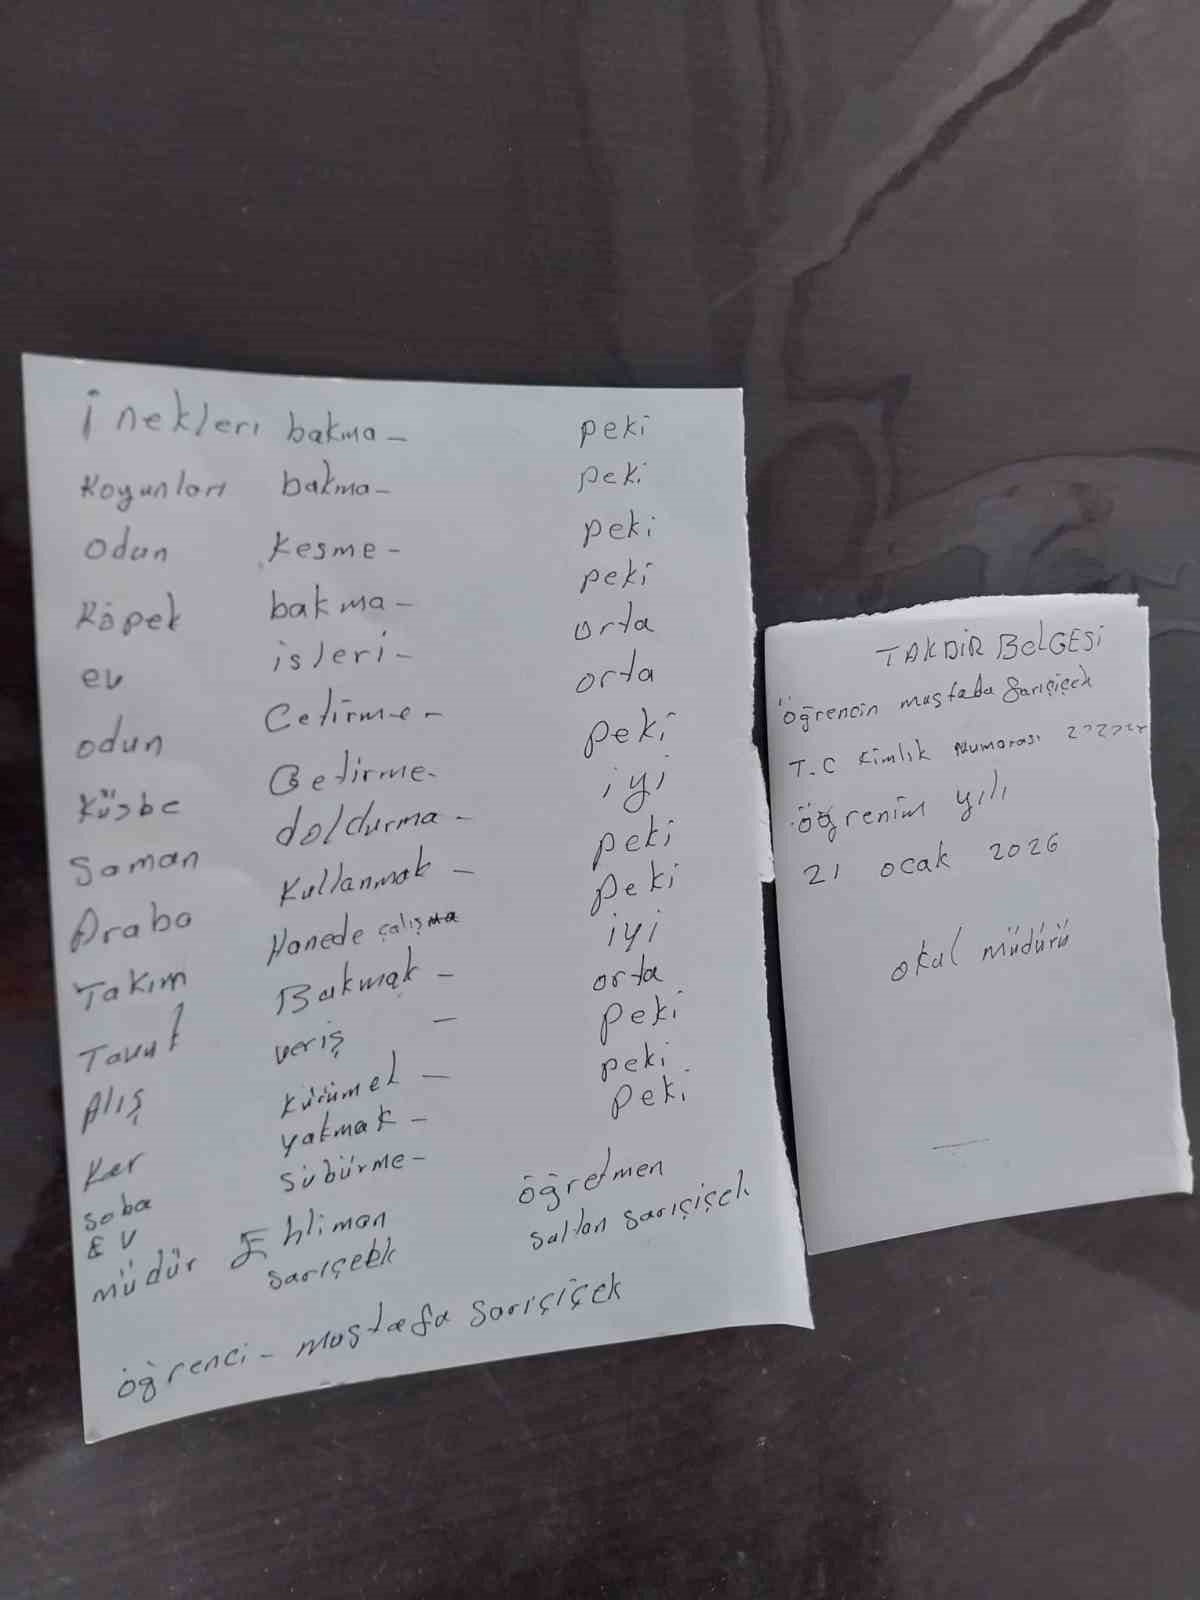 İnekleri bakma - peki
Koyunları bakma - peki
odun Kesme - peki
Köpek bakma - peki
ev isleri - orta
odun Cetirme - orta
Küsbe Getirme - peki
Saman doldurma - iyi
Araba Kullanmak - peki
Takım Hanede çalışma peki
Tavuk Bakmak - iyi
Alış veriş - orta
Kar Kürümek - peki
soba yakmak - peki
EV Sübürme - peki
müdür Ehliman öğretmen
sarıçeek sultan sarıçiçek
öğrenci - mustafa sarıçiçek
TAKDİR BELGESİ
Öğrencin mustafa sarıçiçek
T.C Kimlik Numarası
öğrenim yılı
21 ocak 2026
okul müdürü